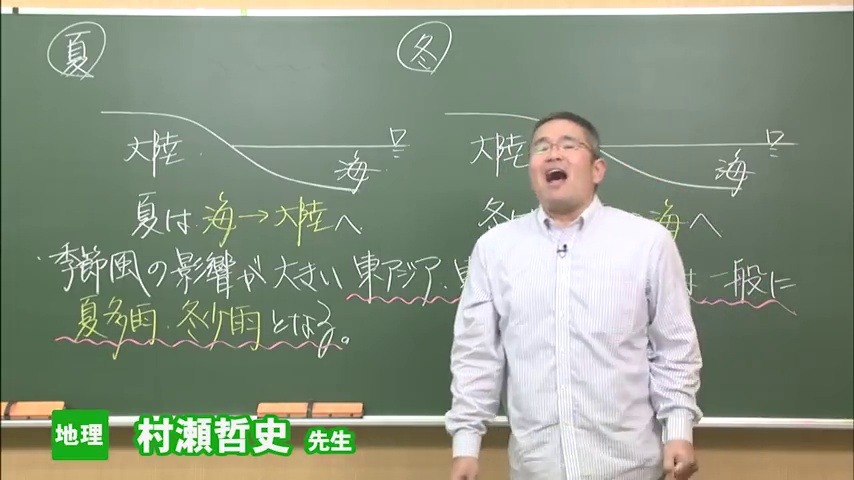 夏
冬
大陸
海
大陸
海
夏は 海→大陸へ
冬は 海へ
季節風の影響が大きい 東アジア・ は一般に
夏多雨・冬少雨となる。
地理 村瀬哲史 先生